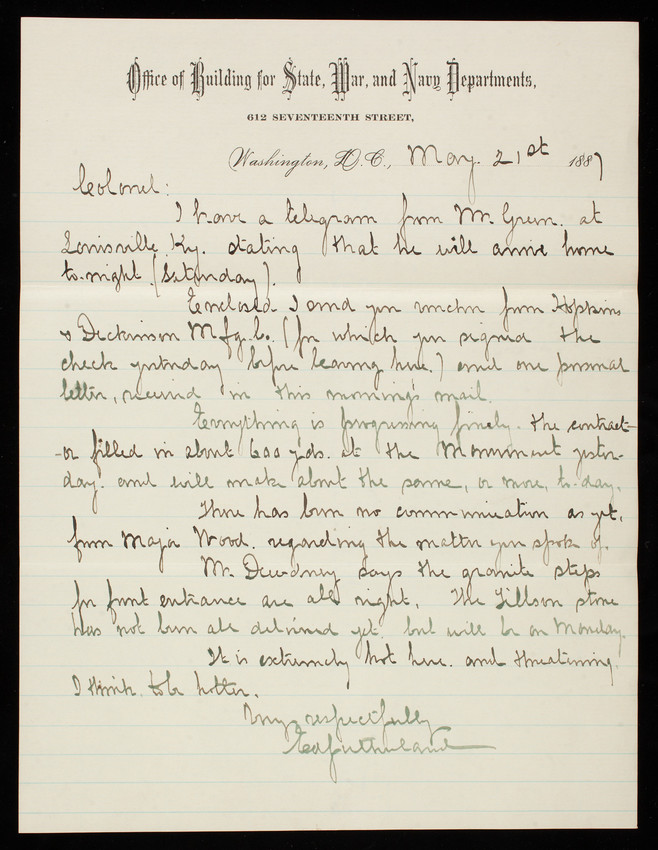 Office of Building for State, War, and Navy Departments,
612 SEVENTEENTH STREET,
Washington, D.C., May. 21st 1887
Colonel:
I have a telegram from Mr. Green. at
Louisville Ky. stating that he will arrive home
to-night. (Saturday).
Enclosed I send you voucher from Hopkins
& Dickinson Mfg. Co. (for which you signed the
check yesterday before leaving here.) and one personal
letter, received in this morning's mail.
Everything is progressing finely. the contract-
-or filled in about 600 yds. at the Monument yester-
day. and will make about the same, or more, to-day.
There has been no communication as yet,
from Major Wood. regarding the matter you spoke of.
Mr. Dewdney says the granite steps
for front entrance are all right. The Tillson stone
has not been all delivered yet. but will be on Monday.
It is extremely hot here. and threatening,
I think. to be hotter.
Very respectfully